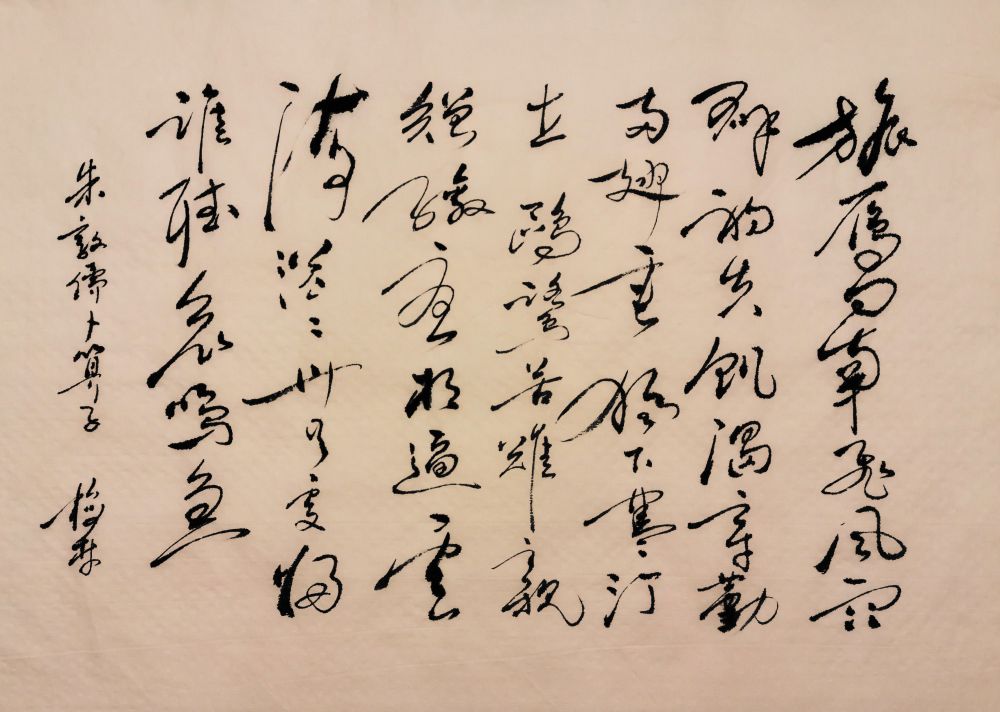 旅雁向南飛風雨
群初失飢渴辛勤
兩翅垂獨下寒汀
立鷗鷺苦難親
矰繳憂相逼雲
海茫〻無處歸
誰聽哀鳴急
朱敦儒卜算子